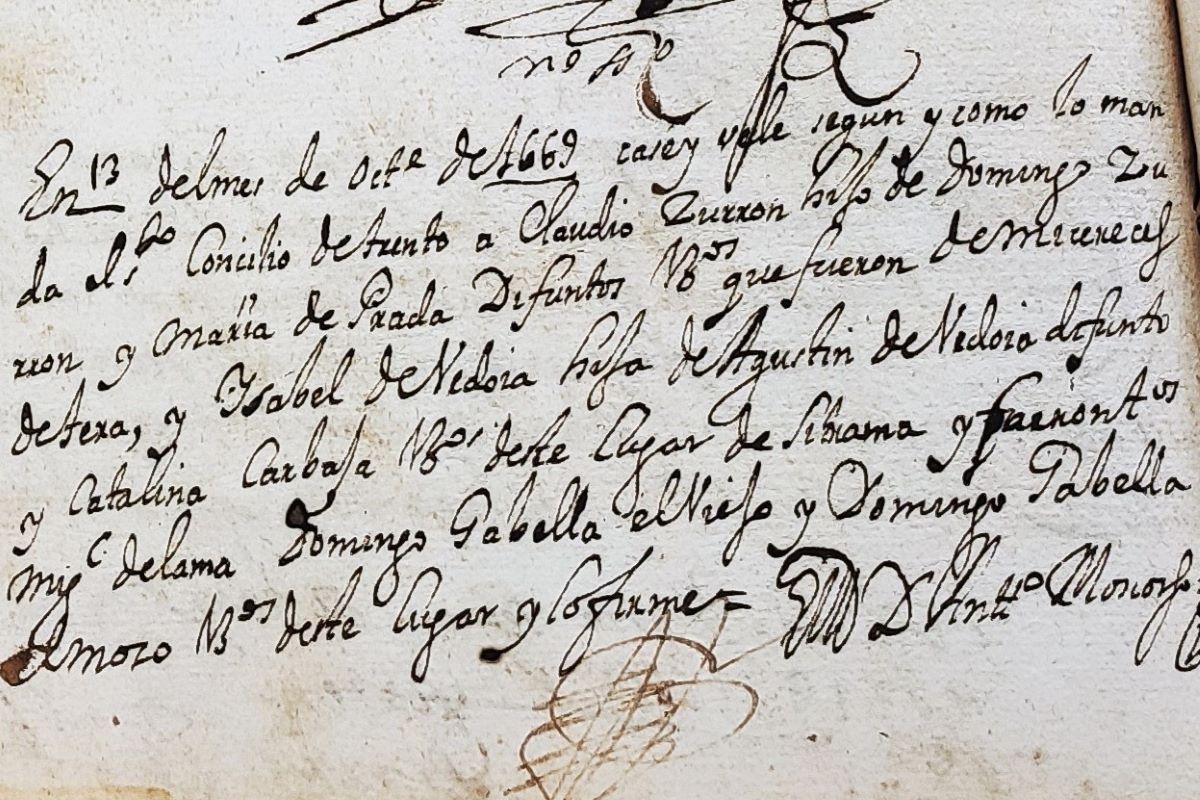 nº ssº
En 13 del mes de octe de 1669 case y vele segun y como lo man
da el sto Concilio de trento a Claudio Zurron hijo de Domingo Zu
rron y maria de Prada Difuntos Vos que fueron de Micereces
de tera, y Ysabel de Vedoia hija de Agustin de Vedoia difunto
y Catalina Carbaja Vos deste lugar de sibrama y fueron tos
Migl de lama Domingo Gabella el Viejo y Domingo Gabella
el mozo Vos deste lugar y lo firme =